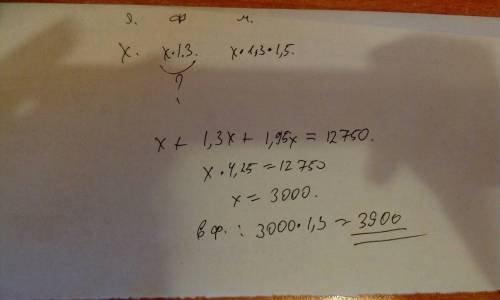 я. ф м.
x. x·1.3. x·1,3·1,5.
?
x + 1,3x + 1,95x = 12750.
x·4,25 = 12750
x = 3000.
в ф.: 3000·1,3 = 3900